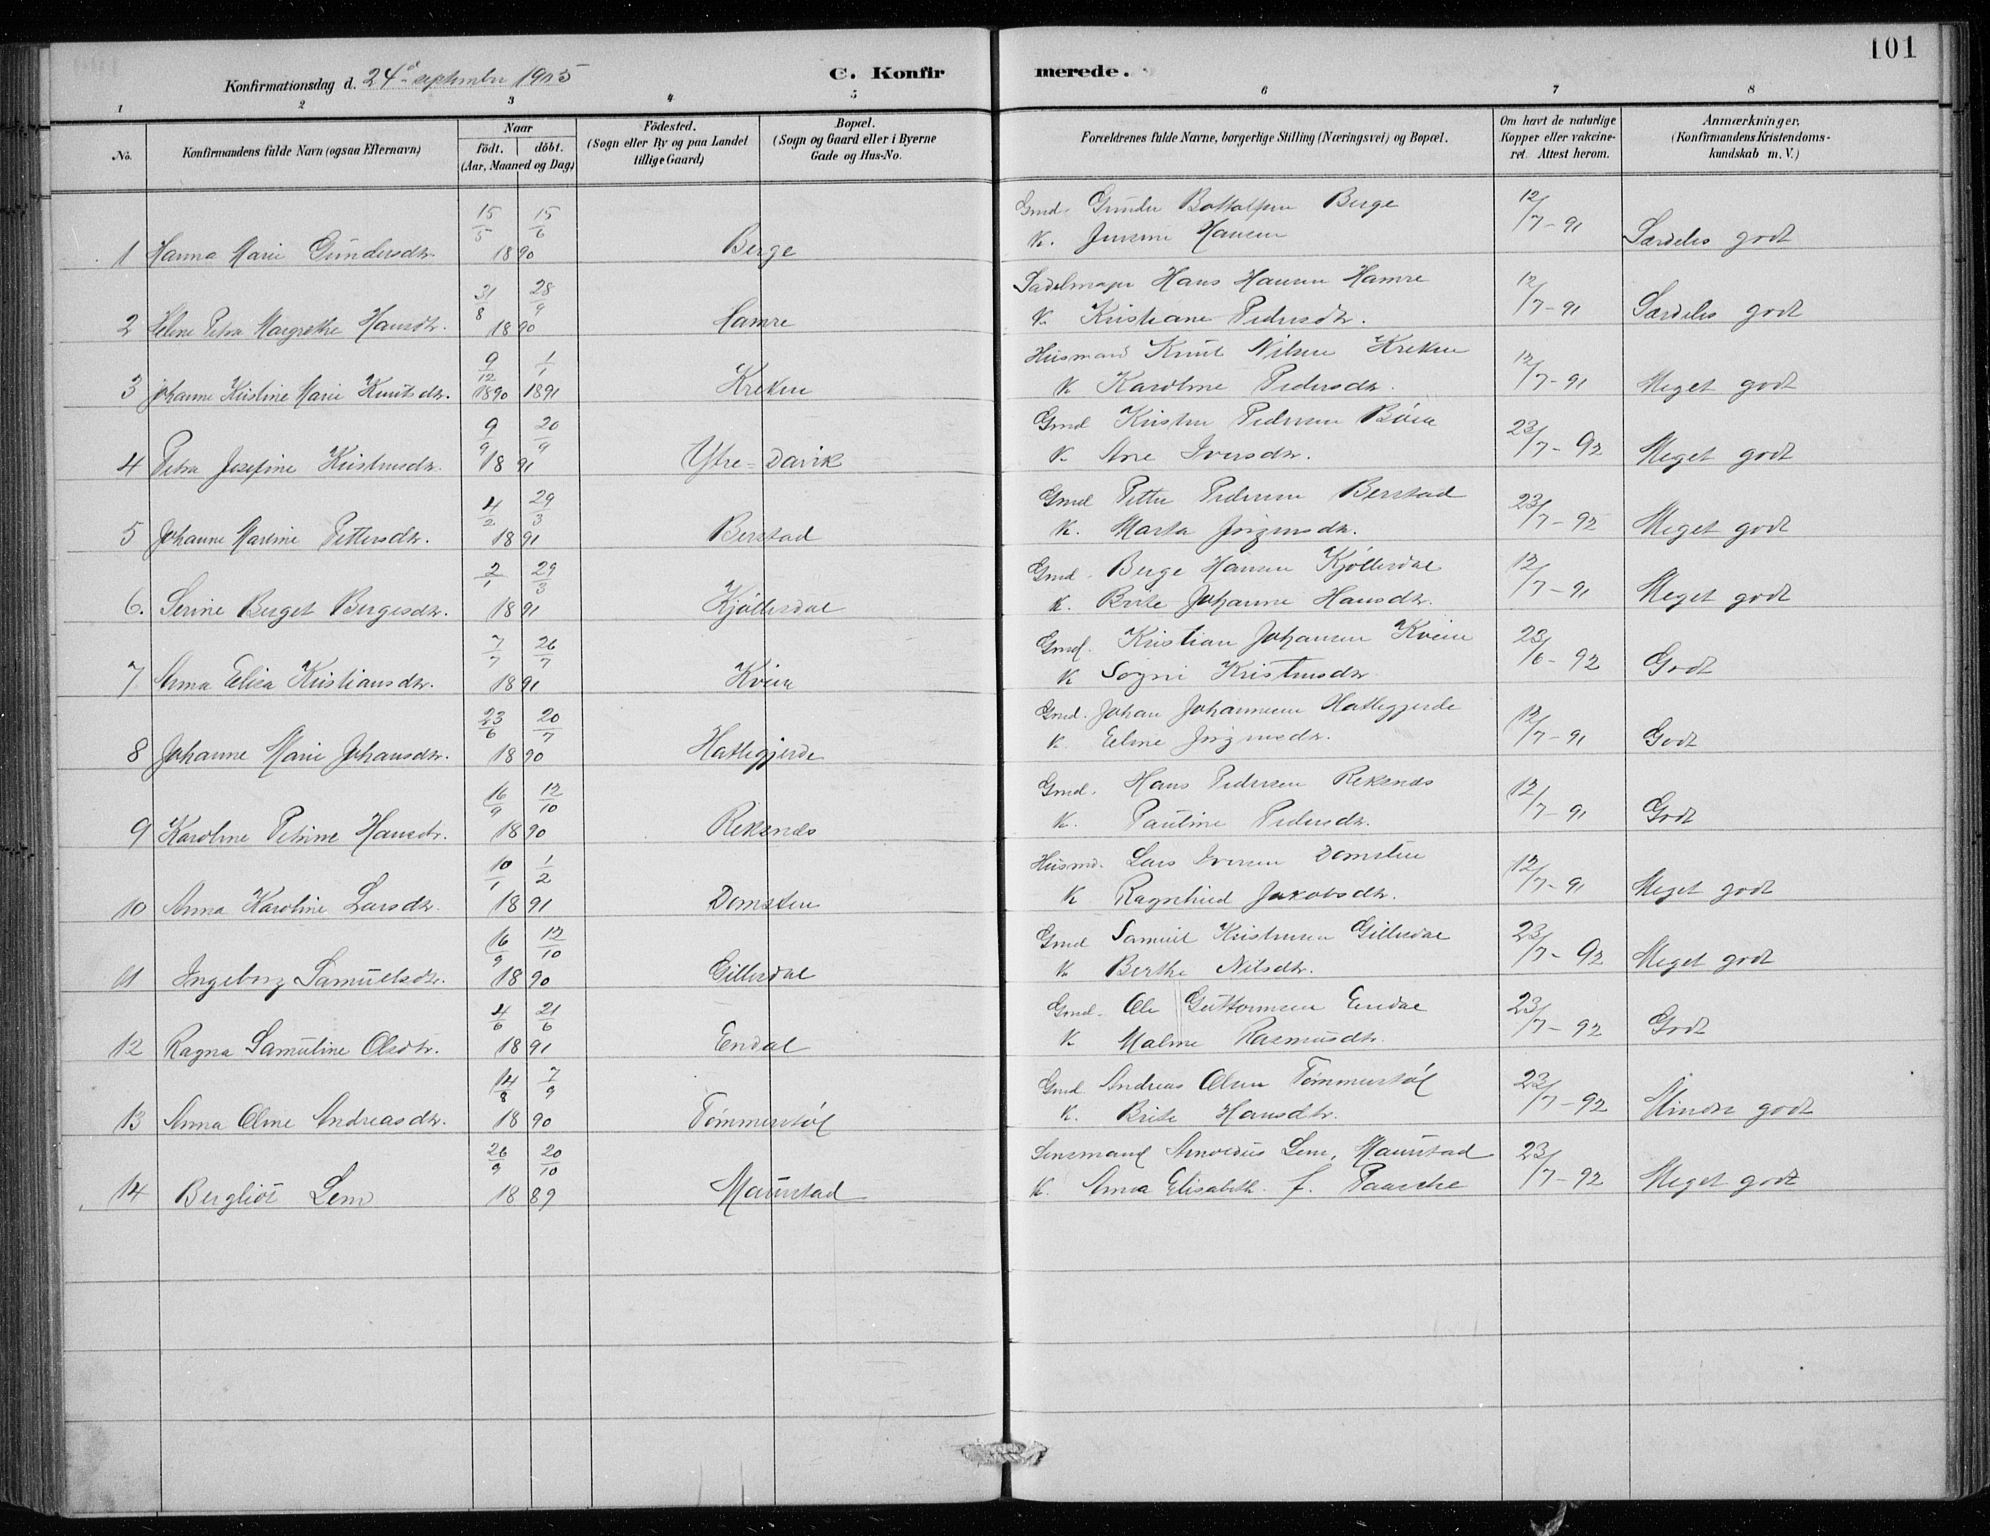 101
Konfirmationsdag d. 24de september 1905
C. Konfirmerede.
1 2 3 4 5 6 7 8
No. Konfirmandens fulde Navn (ogsaa Efternavn) Naar födt. döbt. (Aar, Maaned og Dag) Födested. (Sogn eller By og paa Landet tillige Gaard) Bopæl. (Sogn og Gaard eller i Byerne Gade og Hus-No. Forældrenes fulde Navne, borgerlige Stilling (Næringsvei) og Bopæl. Om havt de naturlige Kopper eller vakcineret. Attest herom. Anmærkninger. (Konfirmandens Kristendomskundskab m. V.)
1 Hanna Marie Gundersdtr. 15/5 15/6 1890 Berge Gmd. Gunder Bottolfsen Berge 12/7-91 Særdeles godt
K. Jensine Hansen
2 Helene Petra Margrethe Hansdtr. 31/8 28/9 1890 Hamre Sadelmager Hans Hansen Hamre 12/7-91 Særdeles godt
K. Kristiane Pedersdtr.
3 Johanne Kristine Marie Knutsdtr. 9/12 1890 1/1 1891 Kreken Husmand Knut Nilsen Kreken 12/7-91 Meget godt
K Karoline Pedersdtr.
4 Petra Josefine Kristensdtr. 9/9 20/9 1891 Ytre-Davik Gmd Kristen Pedersen Bøen 23/7-92 Meget godt
K. Ane Iversdtr.
5 Johanne Martine Pettersdtr. 4/2 29/3 1891 Berstad Gmd Petter Pedersen Berstad 23/7-92 Meget godt
K. Marta Jørgensdtr.
6. Serine Berget Bergesdtr. 2/1 29/3 1891 Kjøllesdal Gmd. Berge Hansen Kjøllesdal 12/7-91 Meget godt
K. Brite Johanne Hansdtr.
7 Anna Elisa Kristiansdtr. 7/7 26/7 1891 Kveen Gmd. Kristian Johansen Kveen 23/6-92 Godt
K Sogni Kristensdtr
8 Johanne Marie Johansdtr. 23/6 20/7 1890 Hatlegjerde Gmd. Johan Johannesen Hatlegjerde 12/7-91 Godt
K. Eline Jørgensdtr.
9 Karoline Petrine Hansdtr. 16/9 12/10 1890 Reksnes Gmd. Hans Pedersen Reksnes 12/7-91 Godt
K. Pauline Pedersdtr.
10 Anna Karoline Larsdtr. 10/1 1/2 1891 Domsten Husmd. Lars Iversen Domsten 12/7-91 Meget godt
K Ragnhild Jakobsdtr.
11 Ingeborg Samuelsdtr. 16/9 12/10 1890 Gillesdal Gmd Samuel Kristensen Gillesdal 23/7-92 Meget godt
K Berthe Nilsdtr.
12 Ragna Samuline Olsdtr. 4/6 21/6 1891 Endal Gmd. Ole Guttormsen Endal 23/7-92 Godt
K. Maline Rasmusdtr.
13 Anna Oline Andreasdtr. 14/8 7/9 1890 Tømmerstøl Gmd. Andreas Olsen Tømmerstøl 23/7-92 Mindre godt
K. Brite Hansdtr.
14 Bergliot Lem 26/9 20/10 1889 Maurstad Lensmand Arnoldus Lem, Maurstad 23/7-92 Meget godt
K. Anna Elisabeth f. Paasche